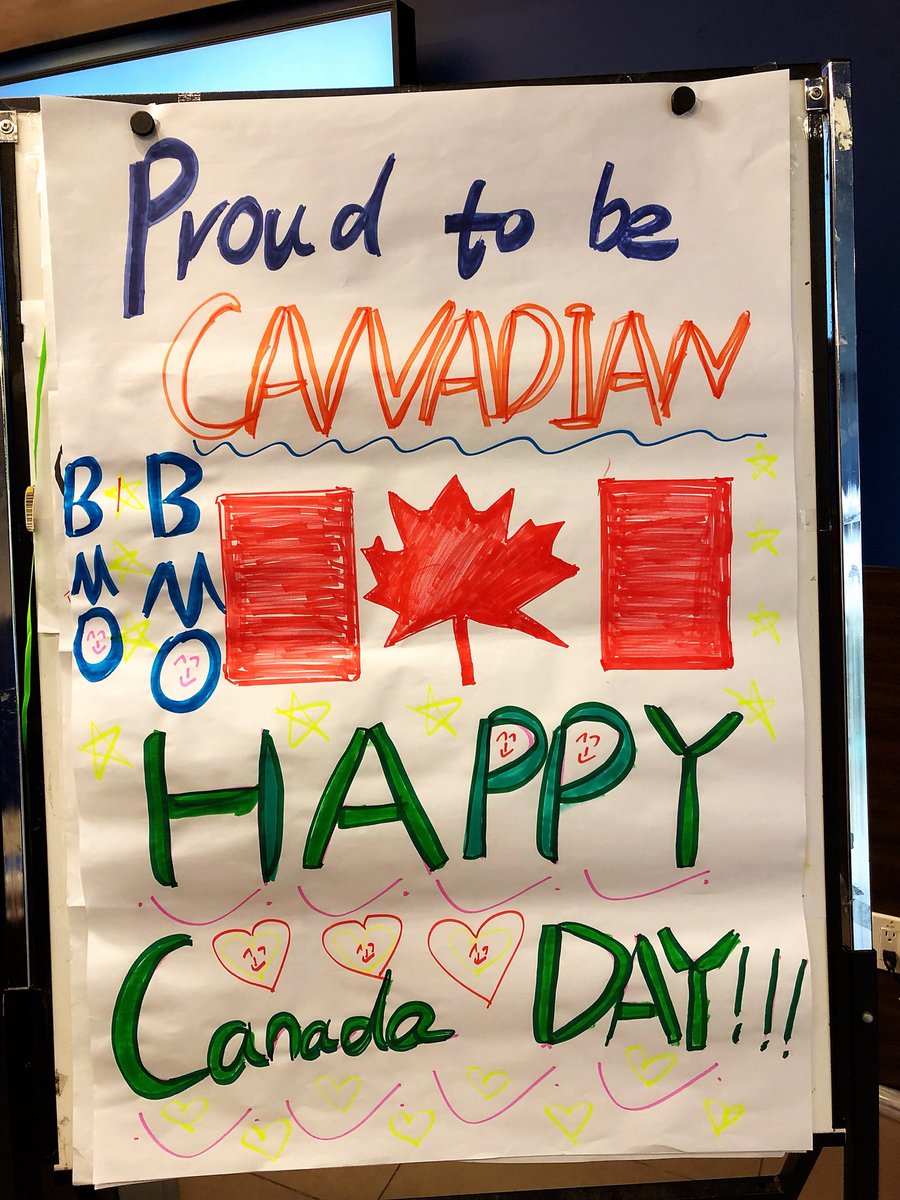 Proud to be
CANADIAN
BMO BMO
HAPPY
Canada DAY!!!